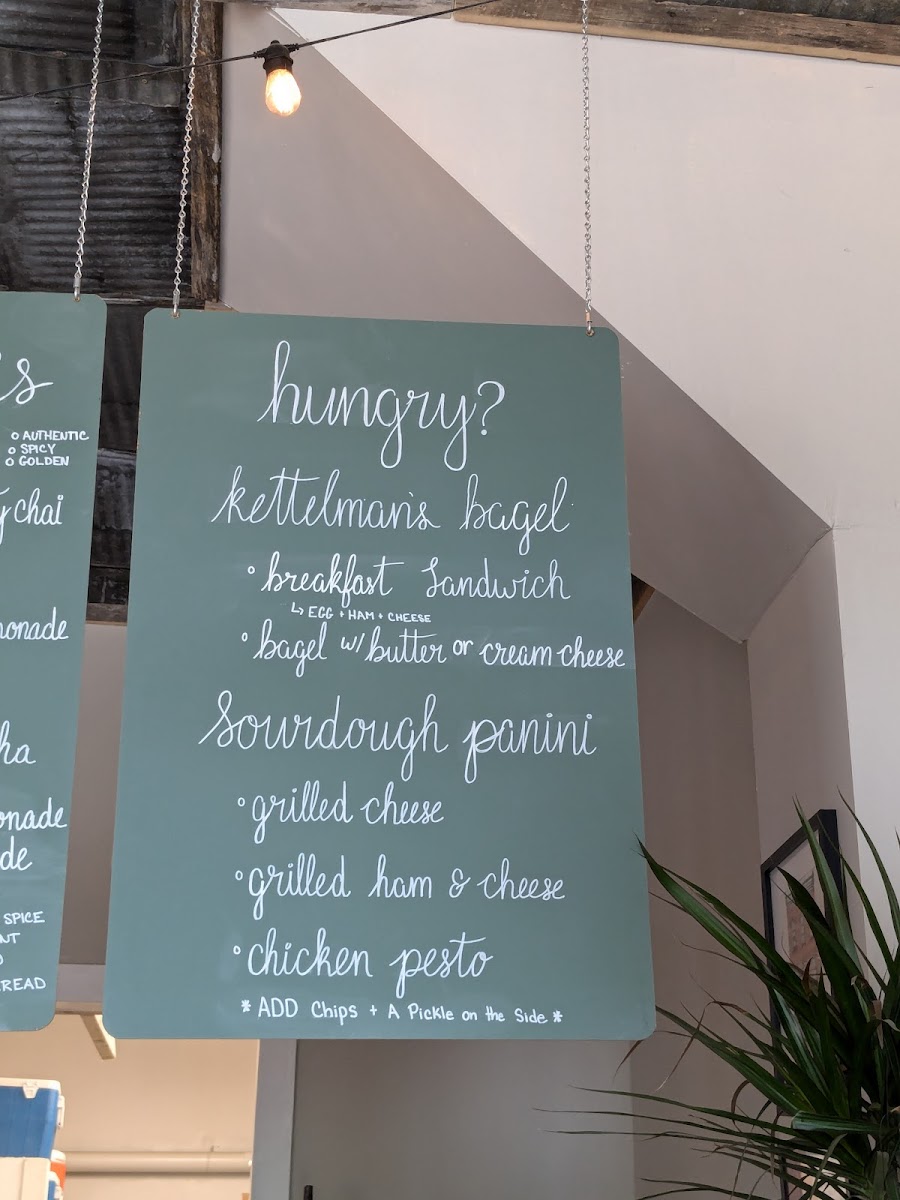 o AUTHENTIC
o SPICY
o GOLDEN
chai
SPICE
hungry?
kettelman's bagel
° breakfast sandwich
↳ EGG + HAM + CHEESE
° bagel w/ butter or cream cheese
sourdough panini
° grilled cheese
° grilled ham & cheese
° chicken pesto
* ADD Chips + A Pickle on the Side *